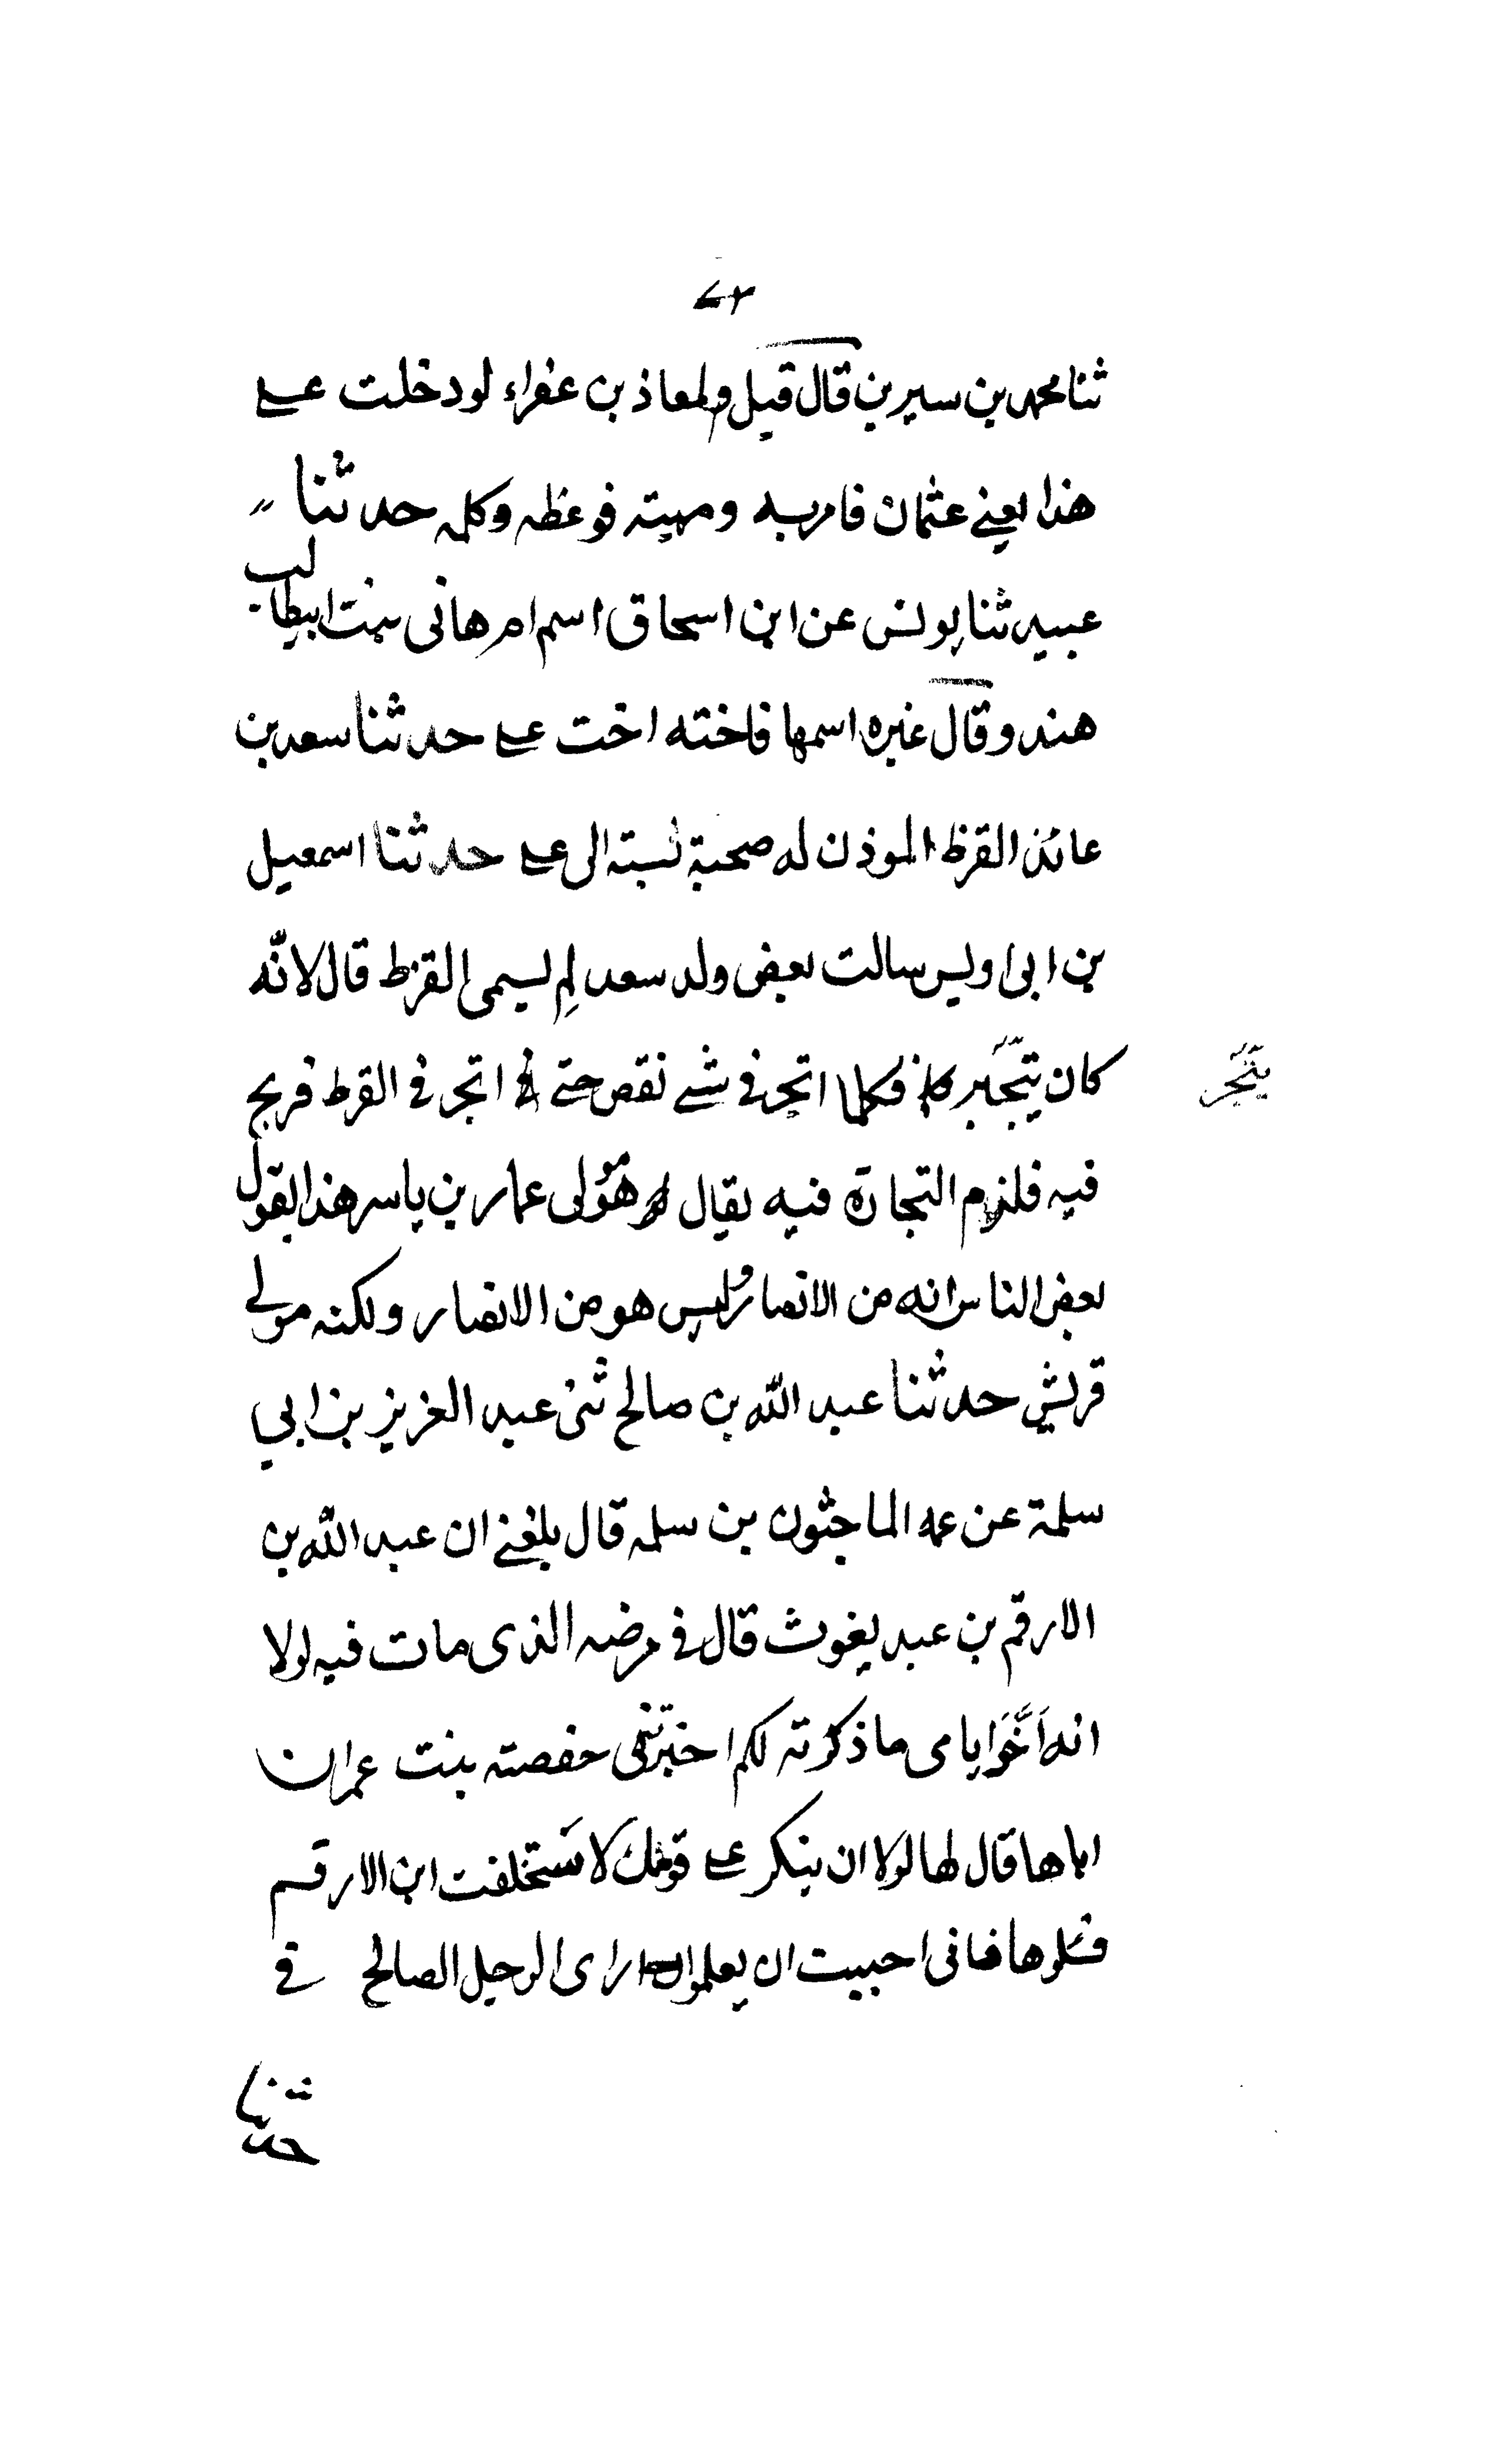 ٤٢
ثنا محمد بن سيرين قال قيل ولمعاذ بن عفراء لو دخلت على
هذا يعني عثمان فامر به ومهيته فوعظه وكلمه حدثنا
عبيد ثنا يونس عن ابن اسحاق اسم ام هانى بنت ابيطالب
هند وقال غيره اسمها فاخته اخت على حدثنا سعد بن
عائذ القرظ الموذن له صحبة نسبته الى على حدثنا اسمعيل
بن ابى اويس سالت بعض ولد سعد لم يسمى القرظ قال لانه
كان يتجر فكلما اتجر فى شى نقص حتى اتجر فى القرظ فربح
يتجر
فيه فلزم التجارة فيه يقال هو مولى عمار بن ياسر هذا القول
بعض الناس انه من الانصار وليس هو من الانصار ولكنه مولى
قريش حدثنا عبد الله بن صالح ثنى عبد العزيز بن ابي
سلمة عن عمه الماجشون بن سلمه قال بلغنى ان عبد الله بن
الارقم بن عبد يغوث قال فى مرضه الذى مات فيه لولا
انه اخر ايامى ما ذكرته لكم اخبرتنى حفصته بنت عمران
اباها قال لها لولا ان ينكر على قومك لاستخلفت ابن الارقم
فسلوها فانى احببت ان يعلموا راى الرجل الصالح فى
حدثنا